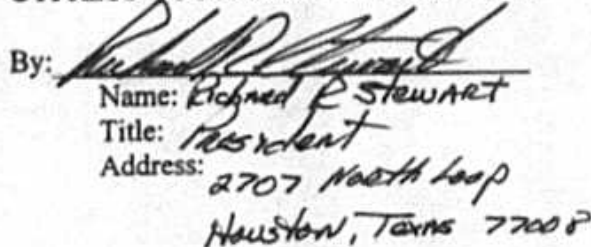 By: Richard R Stewart
Name: Richard R Stewart
Title: President
Address: 2707 North Loop
Houston, Texas 77008